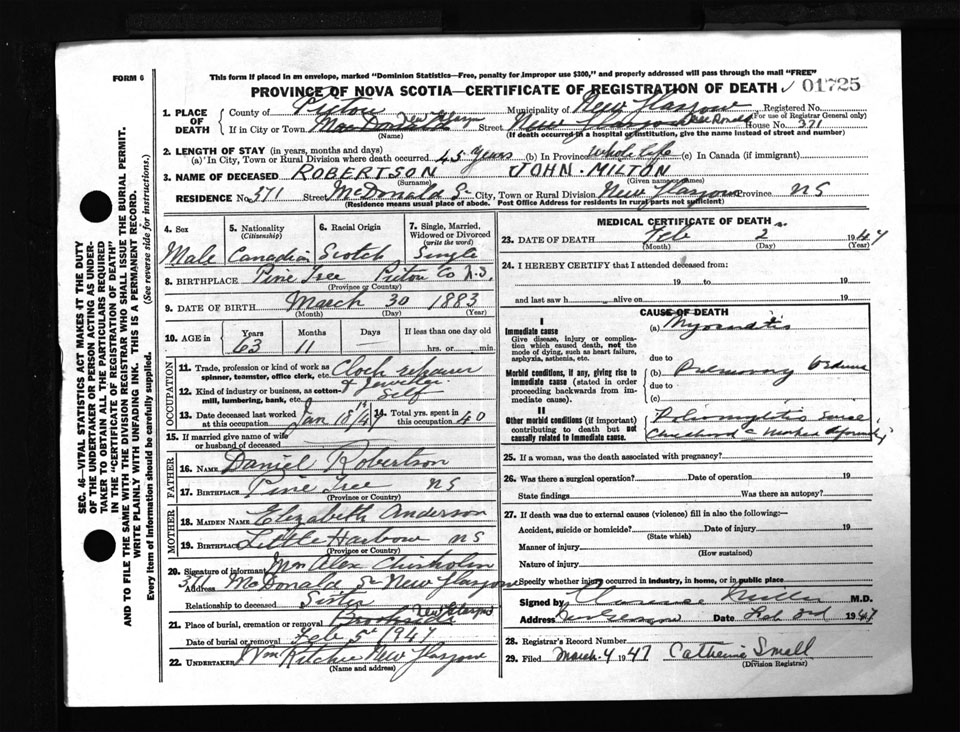 FORM 6
This form if placed in an envelope, marked "Dominion Statistics—Free, penalty for improper use $300," and properly addressed will pass through the mail "FREE"
PROVINCE OF NOVA SCOTIA—CERTIFICATE OF REGISTRATION OF DEATH 01725
1. PLACE OF DEATH County of Pictou Municipality of New Glasgow Registered No.
(For use of Registrar General only)
If in City or Town New Glasgow Street McDonald House No. 371
(Name) (If death occurred in a hospital or institution, give the name instead of street and number)
2. LENGTH OF STAY (in years, months and days)
(a) In City, Town or Rural Division where death occurred 45 years (b) In Province Whole life (c) In Canada (if immigrant)
3. NAME OF DECEASED ROBERTSON JOHN MILTON
(Surname) (Given names)
RESIDENCE No. 371 Street McDonald St City, Town or Rural Division New Glasgow Province NS
(Residence means usual place of abode. Post Office Address for residents in rural parts not sufficient)
4. Sex 5. Nationality (Citizenship) 6. Racial Origin 7. Single, Married, Widowed or Divorced (write the word)
Male Canadian Scotch Single
8. BIRTHPLACE Pine Tree Pictou Co N.S.
(Province or Country)
9. DATE OF BIRTH March 30 1883
(Month) (Day) (Year)
10. AGE in Years Months Days If less than one day old
63 11 — hrs. or min.
OCCUPATION
11. Trade, profession or kind of work as spinner, teamster, office clerk, etc. Clock repairer & Jeweller
12. Kind of industry or business, as cotton-mill, lumbering, bank, etc. Self
13. Date deceased last worked at this occupation Jan 18th/47 14. Total yrs. spent in this occupation 40
15. If married give name of wife or husband of deceased
FATHER
16. NAME Daniel Robertson
17. BIRTHPLACE Pine Tree NS
(Province or Country)
MOTHER
18. MAIDEN NAME Elizabeth Anderson
19. BIRTHPLACE Little Harbour NS
(Province or Country)
20. Signature of informant Mrs Alex Chisholm
Address 371 McDonald St New Glasgow
Relationship to deceased Sister
21. Place of burial, cremation or removal Brookside New Glasgow
Date of burial or removal Feb 5th 1947
22. UNDERTAKER Wm Ritchie New Glasgow
MEDICAL CERTIFICATE OF DEATH
23. DATE OF DEATH Feb 2 1947
(Month) (Day) (Year)
24. I HEREBY CERTIFY that I attended deceased from:
19 to 19
and last saw h alive on 19
CAUSE OF DEATH
I
Immediate cause
Give disease, injury or complication which caused death, not the mode of dying, such as heart failure, asphyxia, asthenia, etc.
(a) Myocarditis
due to
Morbid conditions, if any, giving rise to immediate cause (stated in order proceeding backwards from immediate cause).
(b) Pulmonary Oedema
due to
(c)
II
Other morbid conditions (if important) contributing to death but not causally related to immediate cause.
Poliomyelitis since Childhood c marked deformity
25. If a woman, was the death associated with pregnancy?
26. Was there a surgical operation? Date of operation 19
State findings Was there an autopsy?
27. If death was due to external causes (violence) fill in also the following:—
Accident, suicide or homicide? Date of injury 19
(State which)
Manner of injury
(How sustained)
Nature of injury
Specify whether injury occurred in industry, in home, or in public place
Signed by Clarence Miller M.D.
Address New Glasgow Date Feb 3rd 1947
28. Registrar's Record Number
29. Filed March 4 1947 Catherine Small
(Division Registrar)
SEC. 46—VITAL STATISTICS ACT MAKES IT THE DUTY
OF THE UNDERTAKER OR PERSON ACTING AS UNDER-
TAKER TO OBTAIN ALL THE PARTICULARS REQUIRED
IN THE "CERTIFICATE OF REGISTRATION OF DEATH"
AND TO FILE THE SAME WITH THE DIVISION REGISTRAR WHO SHALL ISSUE THE BURIAL PERMIT.
WRITE PLAINLY WITH UNFADING INK. THIS IS A PERMANENT RECORD.
Every item of Information should be carefully supplied. (See reverse side for instructions.)